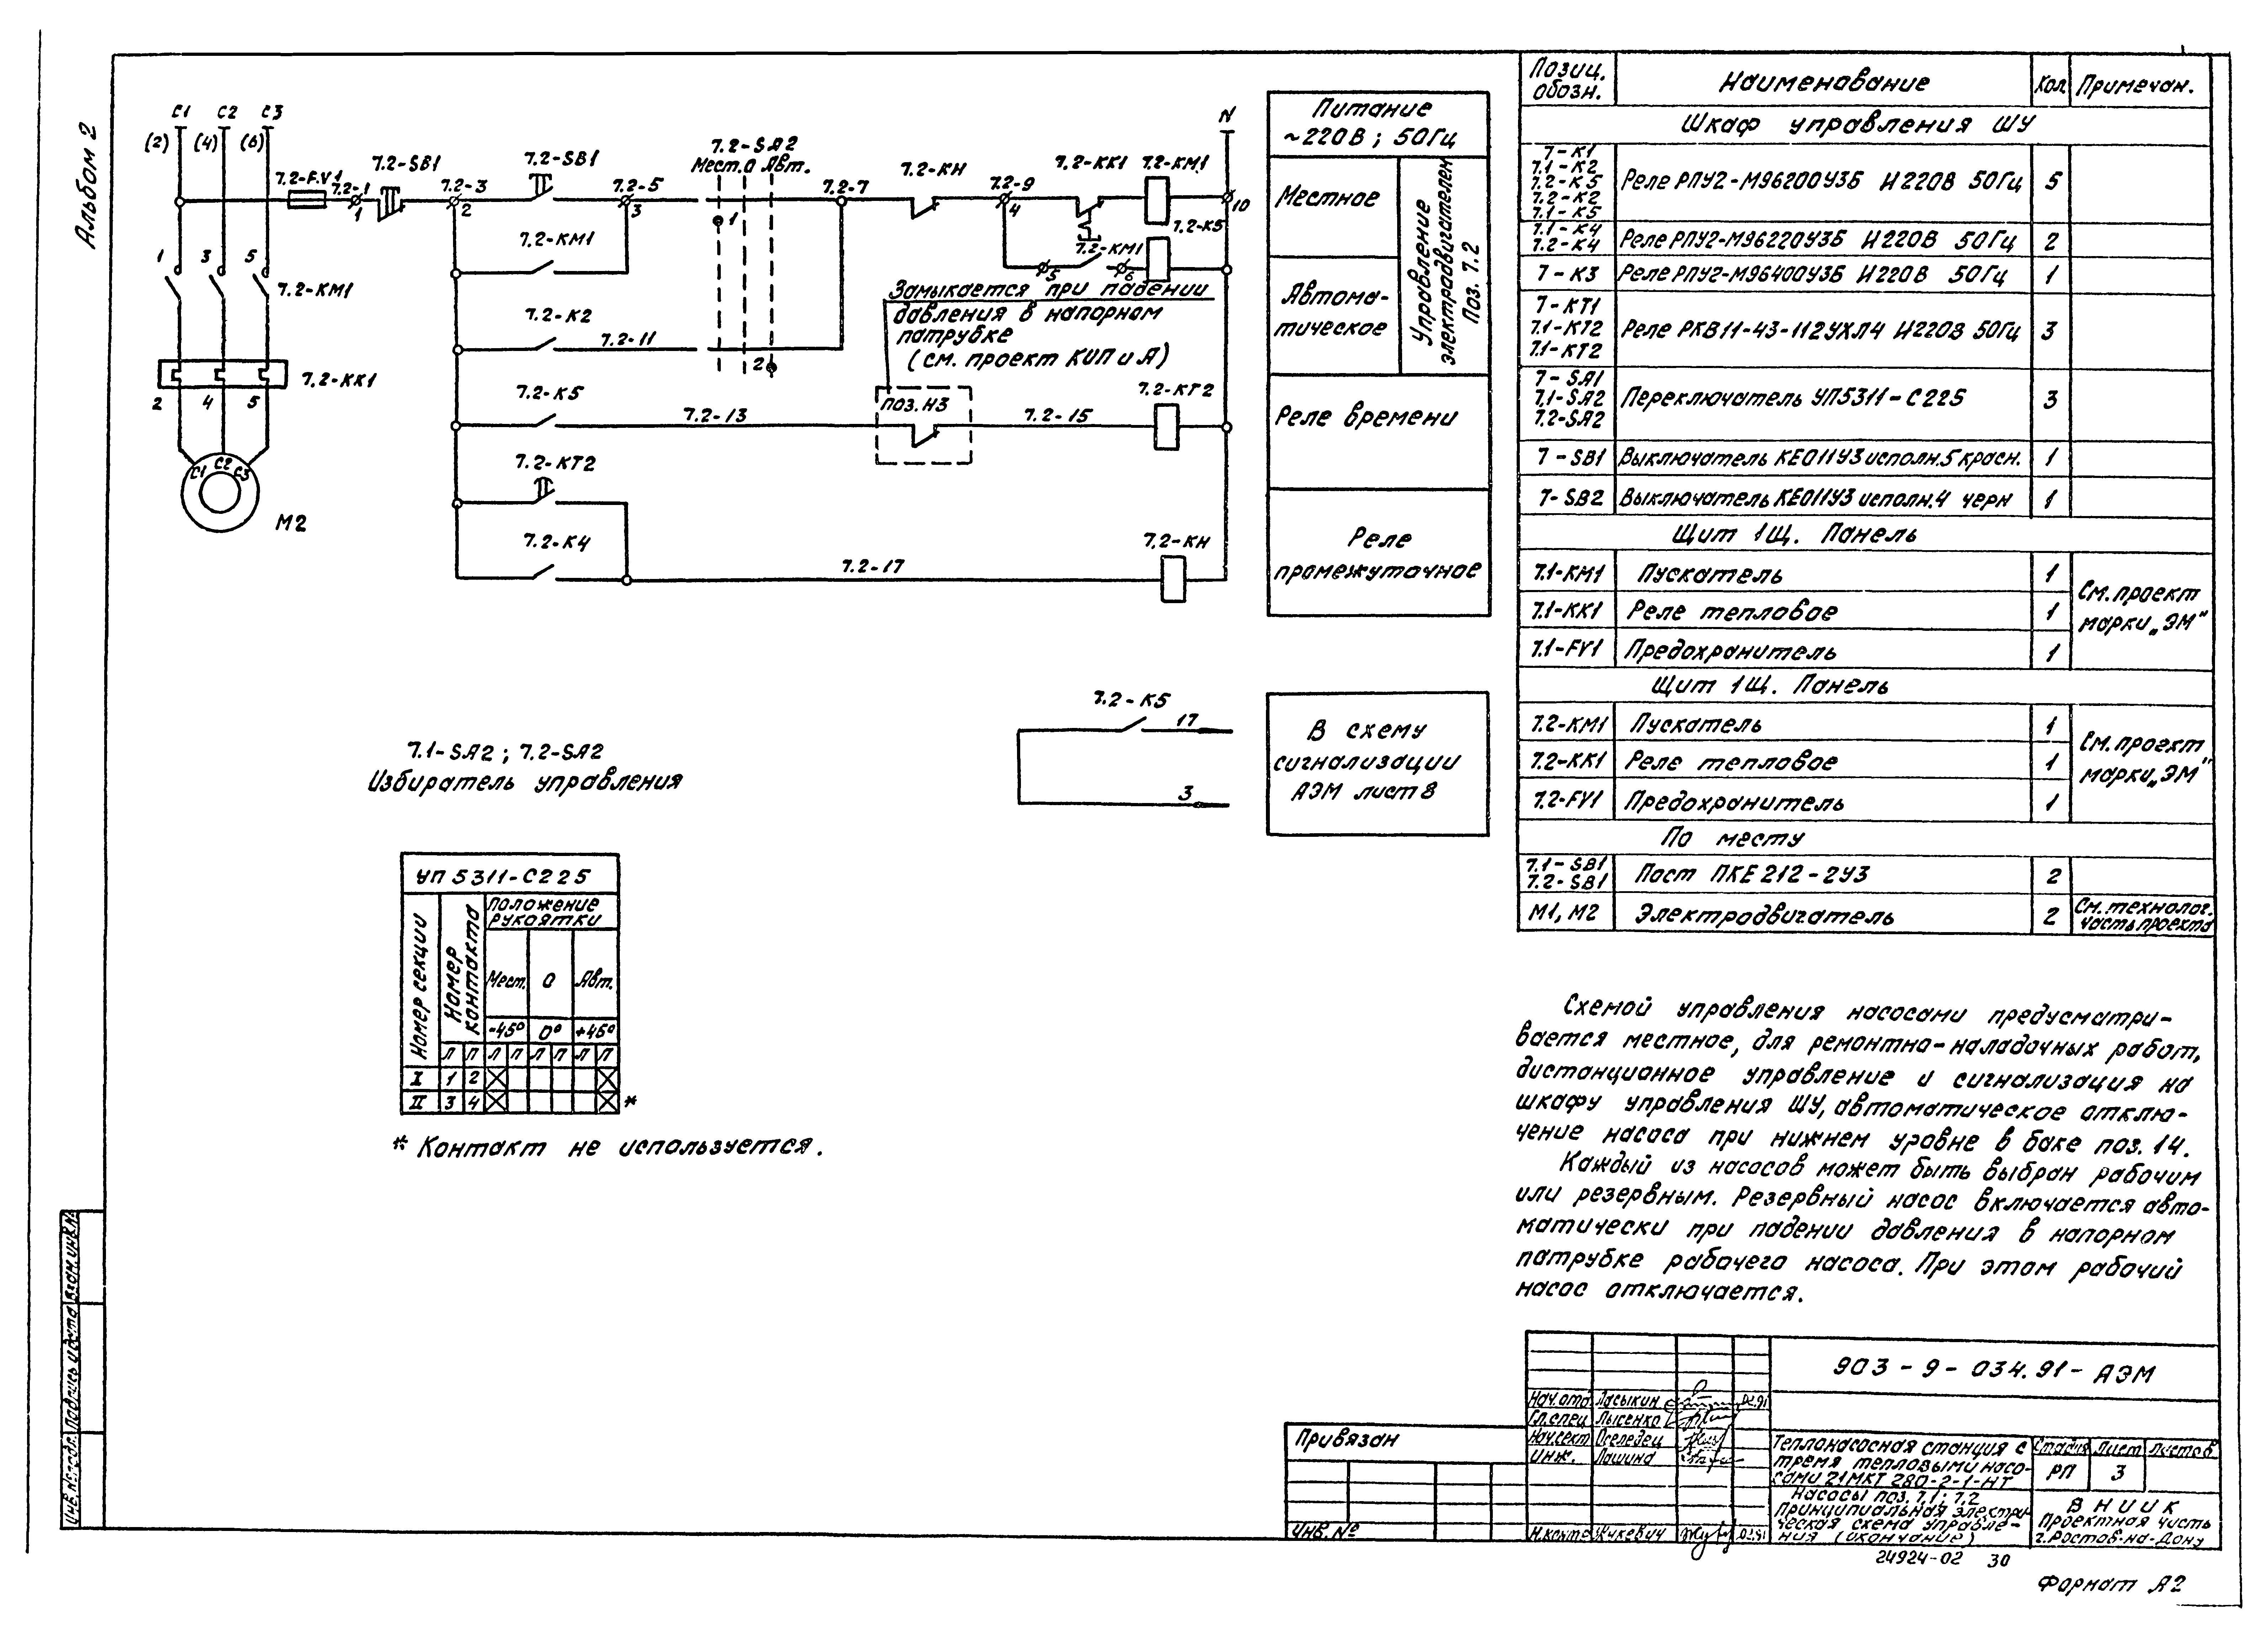 Альбом 2
С1 С2 С3
(2) (4) (6)
7.2-FV1
7.2-1
1
7.2-SB1
7.2-3
2
7.2-SB1
7.2-5
3
7.2-SA2
Мест. 0 Авт.
1
7.2-7
7.2-КН
7.2-9
4
7.2-КК1
7.2-КМ1
N
10
7.2-К5
7.2-КМ1
5
6
7.2-КМ1
1 3 5
7.2-КМ1
7.2-К2
7.2-11
2
Замыкается при падении
давления в напорном
патрубке
(см. проект КИП и А)
7.2-КК1
2 4 5
7.2-К5
7.2-13
поз. Н3
7.2-15
7.2-КТ2
С1 С2 С3
М2
7.2-КТ2
7.2-К4
7.2-17
7.2-КН
Питание
~220В; 50Гц
Местное
Автома-
тическое
Управление
электродвигателем
Поз. 7.2
Реле времени
Реле
промежуточное
7.2-К5
17
3
В схему
сигнализации
АЭМ лист 8
7.1-SA2; 7.2-SA2
Избиратель управления
УП 5311-С225
Номер секции
Номер
контакта
Положение
рукоятки
Мест. 0 Авт.
-45° 0° +45°
Л П Л П Л П Л П
I 1 2
II 3 4 *
* Контакт не используется.
Позиц.
обозн.
Наименование
Кол
Примечан.
Шкаф управления ШУ
7-К1
7.1-К2
7.2-К5
7.2-К2
7.1-К5
Реле РПУ2-М96200У3Б И220В 50Гц 5
7.1-К4
7.2-К4
Реле РПУ2-М96220У3Б И220В 50Гц 2
7-К3 Реле РПУ2-М96400У3Б И220В 50Гц 1
7-КТ1
7.1-КТ2
7.1-КТ2
Реле РКВ11-43-112УХЛ4 И220В 50Гц 3
7-SA1
7.1-SA2
7.2-SA2
Переключатель УП5311-С225 3
7-SB1 Выключатель КЕ011У3 исполн.5 красн. 1
7-SB2 Выключатель КЕ011У3 исполн.4 черн 1
Щит 1Щ. Панель
7.1-КМ1 Пускатель 1
7.1-КК1 Реле тепловое 1
7.1-FY1 Предохранитель 1
См. проект
марки „ЭМ"
Щит 1Щ. Панель
7.2-КМ1 Пускатель 1
7.2-КК1 Реле тепловое 1
7.2-FY1 Предохранитель 1
См. проект
марки „ЭМ"
По месту
7.1-SB1
7.2-SB1
Пост ПКЕ 212-2У3 2
М1, М2 Электродвигатель 2
См. технолог.
часть проекта
Схемой управления насосами предусматри-
вается местное, для ремонтно-наладочных работ,
дистанционное управление и сигнализация на
шкафу управления ШУ, автоматическое отклю-
чение насоса при нижнем уровне в баке поз. 14.
Каждый из насосов может быть выбран рабочим
или резервным. Резервный насос включается авто-
матически при падении давления в напорном
патрубке рабочего насоса. При этом рабочий
насос отключается.
903-9-034.91-АЭМ
Нач.отд Ласыкин 02.91
Гл.спец Лысенко
Нач.сект Оселедец
Инж. Лашина
Н.контр Жукевич 02.91
Теплонасосная станция с
тремя тепловыми насо-
сами 21МКТ 280-2-1-НТ
Стадия Лист Листов
РП 3
Насосы поз. 7.1; 7.2
Принципиальная электри-
ческая схема управле-
ния (окончание)
ВНИИК
Проектная часть
г.Ростов-на-Дону
Привязан
Инв. №
Инв. № подл. Подпись и дата Взам. инв. №
24924-02 30
Формат А2